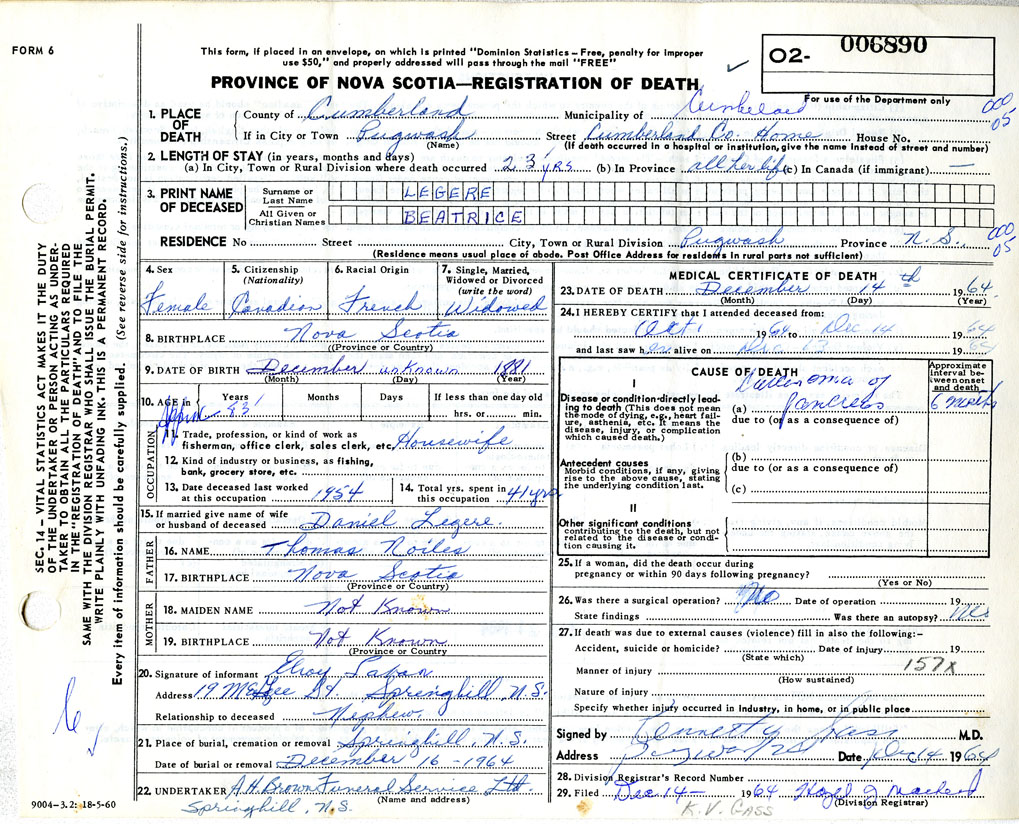 FORM 6
This form, if placed in an envelope, on which is printed "Dominion Statistics – Free, penalty for improper
use $50," and properly addressed will pass through the mail "FREE"
O2- 006890
For use of the Department only
PROVINCE OF NOVA SCOTIA—REGISTRATION OF DEATH
1. PLACE OF DEATH
County of Cumberland Municipality of Cumberland
000
05
If in City or Town Pugwash Street Cumberland Co. Home House No.
(Name) (If death occurred in a hospital or institution, give the name instead of street and number)
2. LENGTH OF STAY (in years, months and days)
(a) In City, Town or Rural Division where death occurred 23 yrs (b) In Province all her life (c) In Canada (if immigrant) —
3. PRINT NAME OF DECEASED
Surname or Last Name LEGERE
All Given or Christian Names BEATRICE
RESIDENCE No Street City, Town or Rural Division Pugwash Province N.S.
000
05
(Residence means usual place of abode. Post Office Address for residents in rural parts not sufficient)
4. Sex Female
5. Citizenship (Nationality) Canadian
6. Racial Origin French
7. Single, Married, Widowed or Divorced (write the word) Widowed
8. BIRTHPLACE Nova Scotia
(Province or Country)
9. DATE OF BIRTH December unknown 1881
(Month) (Day) (Year)
10. AGE in Years Months Days If less than one day old
83 hrs. or min.
OCCUPATION
11. Trade, profession, or kind of work as
fisherman, office clerk, sales clerk, etc. Housewife
12. Kind of industry or business, as fishing,
bank, grocery store, etc.
13. Date deceased last worked
at this occupation 1954
14. Total yrs. spent in
this occupation 41 yrs
15. If married give name of wife
or husband of deceased Daniel Legere.
FATHER
16. NAME Thomas Noiles
17. BIRTHPLACE Nova Scotia
(Province or Country)
MOTHER
18. MAIDEN NAME Not Known
19. BIRTHPLACE Not Known
(Province or Country
20. Signature of informant
Address 19 McGee St. Springhill, N.S.
Relationship to deceased Nephew.
21. Place of burial, cremation or removal Springhill, N.S.
Date of burial or removal December 16 - 1964
22. UNDERTAKER A.H. Brown Funeral Service Ltd.
(Name and address)
Springhill, N.S.
MEDICAL CERTIFICATE OF DEATH
23. DATE OF DEATH December 14th 1964
(Month) (Day) (Year)
24. I HEREBY CERTIFY that I attended deceased from:
Oct 1 1964 to Dec 14 1964
and last saw her alive on Dec 13 1964
CAUSE OF DEATH
Approximate interval between onset and death
I
Disease or condition directly leading to death (This does not mean the mode of dying, e.g., heart failure, asthenia, etc. It means the disease, injury, or complication which caused death.)
(a) Carcinoma of Pancreas 6 months
due to (or as a consequence of)
Antecedent causes
Morbid conditions, if any, giving rise to the above cause, stating the underlying condition last.
(b)
due to (or as a consequence of)
(c)
II
Other significant conditions
contributing to the death, but not related to the disease or condition causing it.
25. If a woman, did the death occur during
pregnancy or within 90 days following pregnancy?
(Yes or No)
26. Was there a surgical operation? No Date of operation 19
State findings Was there an autopsy? No
27. If death was due to external causes (violence) fill in also the following:–
Accident, suicide or homicide? Date of injury 19
(State which)
157X
Manner of injury
(How sustained)
Nature of injury
Specify whether injury occurred in industry, in home, or in public place
Signed by Kenneth V Gass M.D.
Address Pugwash Date Dec 14 1964
28. Division Registrar's Record Number
29. Filed Dec 14 - 1964 Hazel J Macleod
(Division Registrar)
K.V. GASS
SEC. 14 – VITAL STATISTICS ACT MAKES IT THE DUTY
OF THE UNDERTAKER OR PERSON ACTING AS UNDER-
TAKER TO OBTAIN ALL THE PARTICULARS REQUIRED
IN THE "REGISTRATION OF DEATH" AND TO FILE THE
SAME WITH THE DIVISION REGISTRAR WHO SHALL ISSUE THE BURIAL PERMIT.
WRITE PLAINLY WITH UNFADING INK. THIS IS A PERMANENT RECORD.
Every item of information should be carefully supplied. (See reverse side for instructions.)
9004–3.2: 18-5-60